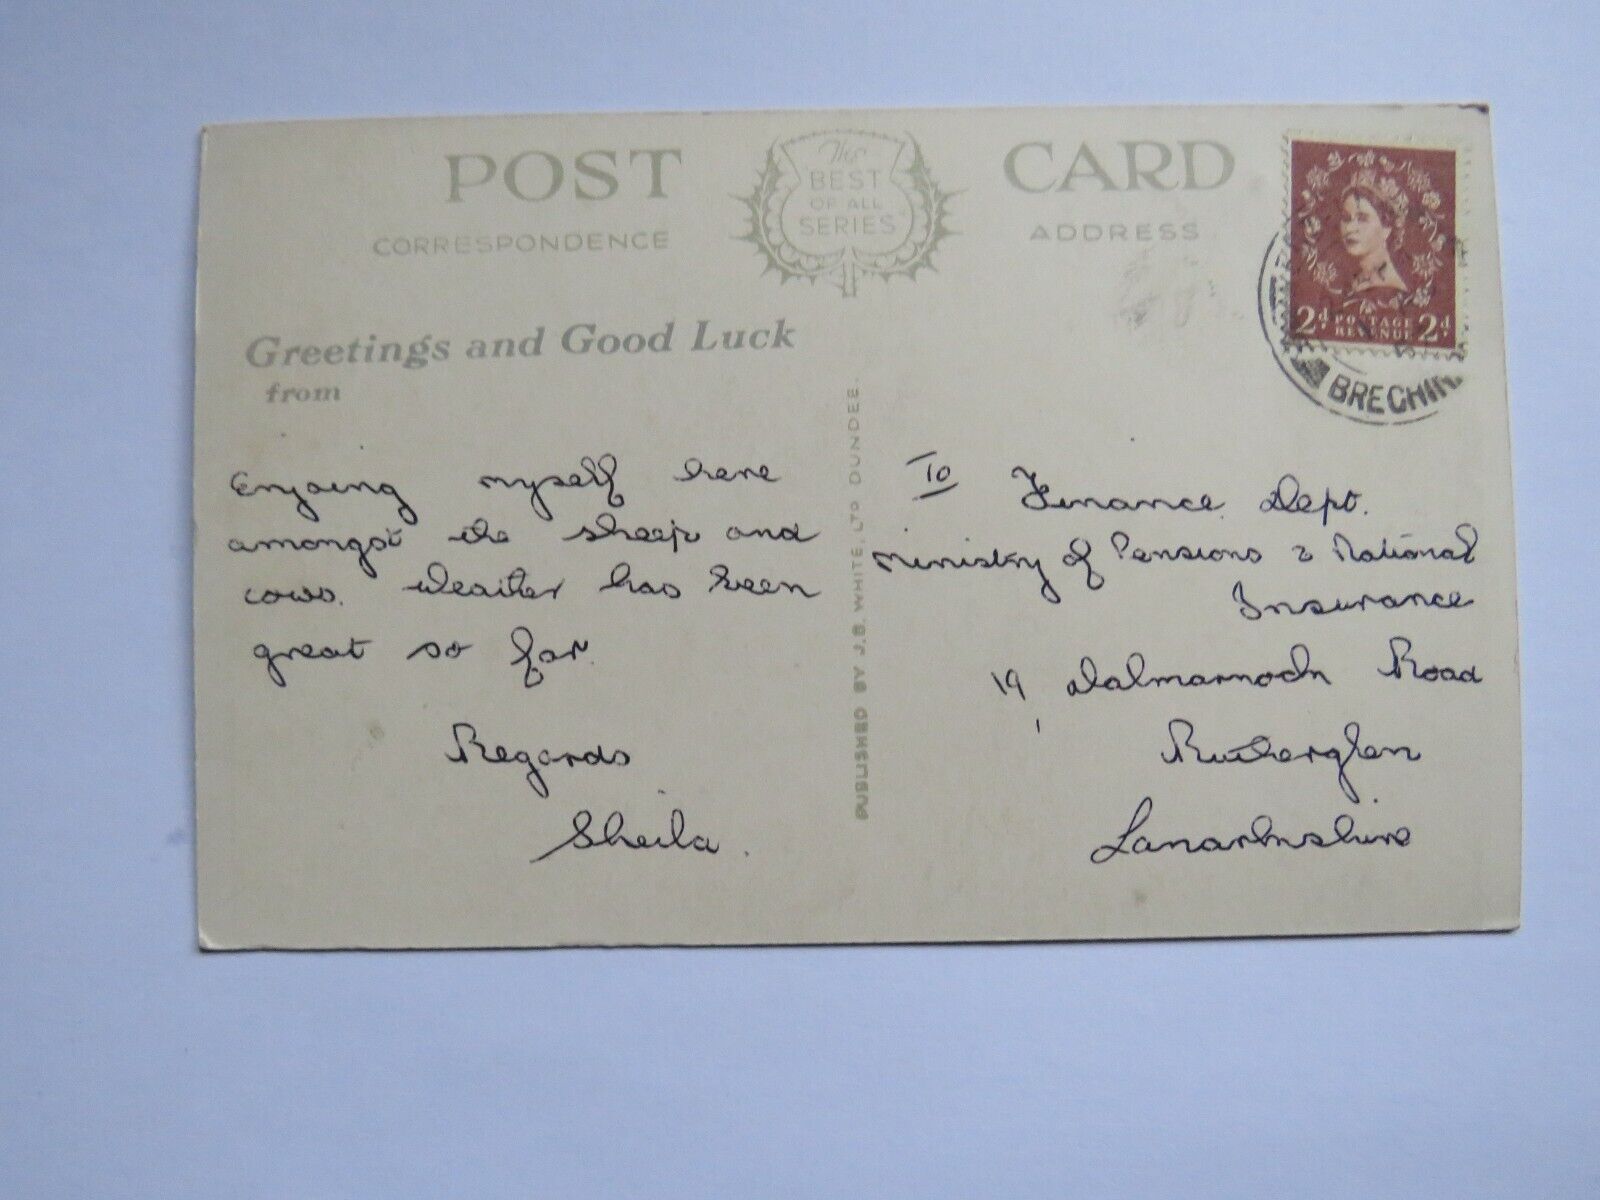 POST CARD
The
BEST
OF ALL
SERIES
CORRESPONDENCE
ADDRESS
Greetings and Good Luck
from
Enjoing myself here
amongst the sheep and
cows. Weather has been
great so far.
Regards
Sheila.
PUBLISHED BY J.B. WHITE, LTD DUNDEE.
2d POSTAGE REVENUE 2d
BRECHIN
To Finance. Dept.
Ministry of Pensions & National
Insurance
19, Dalmarnock Road
Rutherglen
Lanarkshire